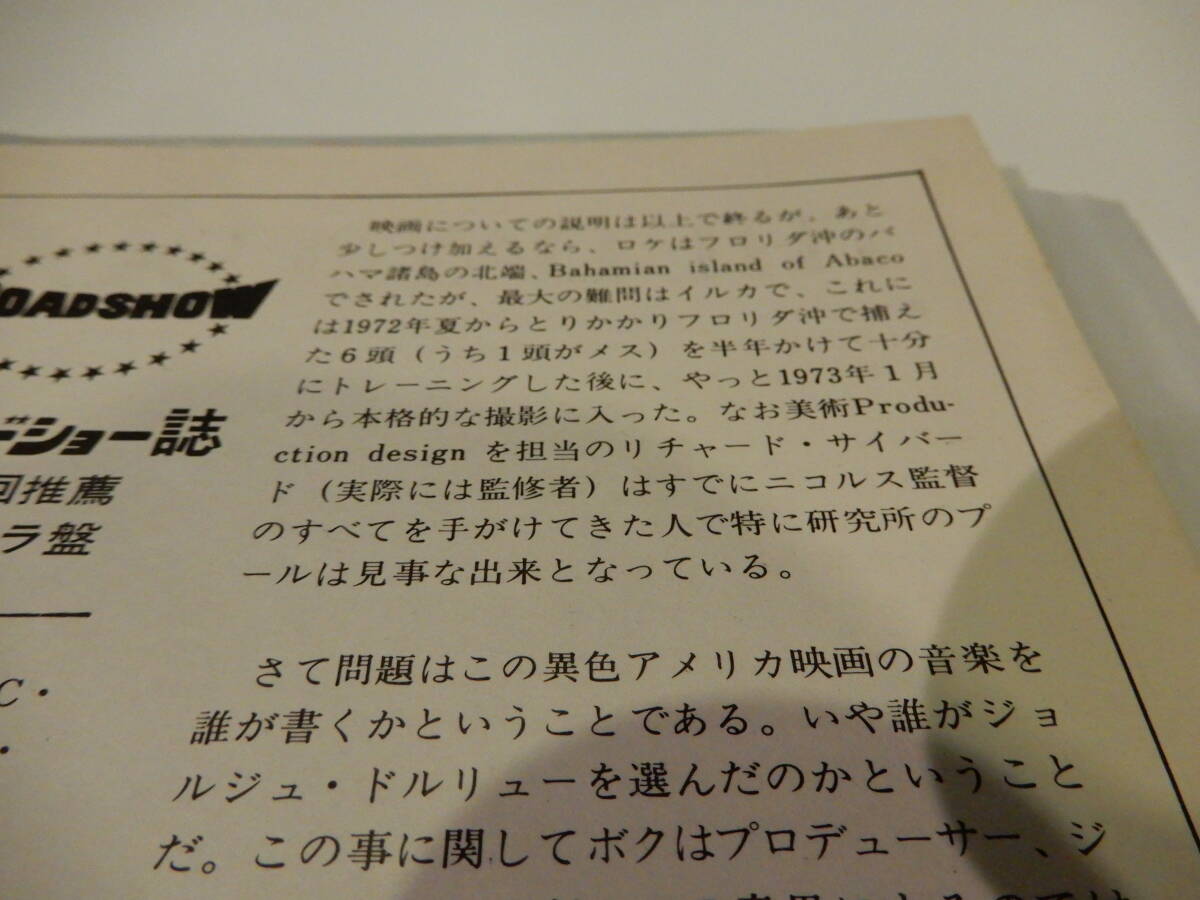 ROADSHOW
ドショー誌
回推薦
ラ盤
C・
・
映画についての説明は以上で終るが、あと
少しつけ加えるなら、ロケはフロリダ沖のバ
ハマ諸島の北端、Bahamian island of Abaco
でされたが、最大の難問はイルカで、これに
は1972年夏からとりかかりフロリダ沖で捕え
た6頭（うち1頭がメス）を半年かけて十分
にトレーニングした後に、やっと1973年1月
から本格的な撮影に入った。なお美術Produ-
ction design を担当のリチャード・サイバー
ド（実際には監修者）はすでにニコルス監督
のすべてを手がけてきた人で特に研究所のプ
ールは見事な出来となっている。
さて問題はこの異色アメリカ映画の音楽を
誰が書くかということである。いや誰がジョ
ルジュ・ドルリューを選んだのかということ
だ。この事に関してボクはプロデューサー、ジ